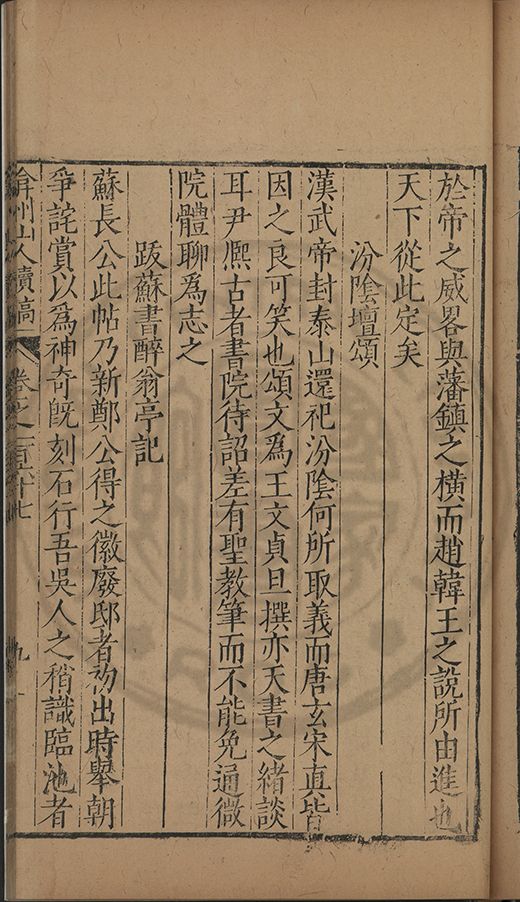 於帝之威畧與藩鎮之橫而趙韓王之說所由進也
天下從此定矣
汾陰壇頌
漢武帝封泰山還祀汾陰何所取義而唐玄宋真皆
因之良可笑也頌文為王文貞旦撰亦天書之緒談
耳尹熈古者書院待詔差有聖教筆而不能免通微
院體聊為志之
跋蘇書醉翁亭記
蘇長公此帖乃新鄭公得之徽廢邸者初出時舉朝
爭詫賞以為神奇旣刻石行吾吳人之稍識臨池者
弇州山人續稿 卷之一百六十七 九